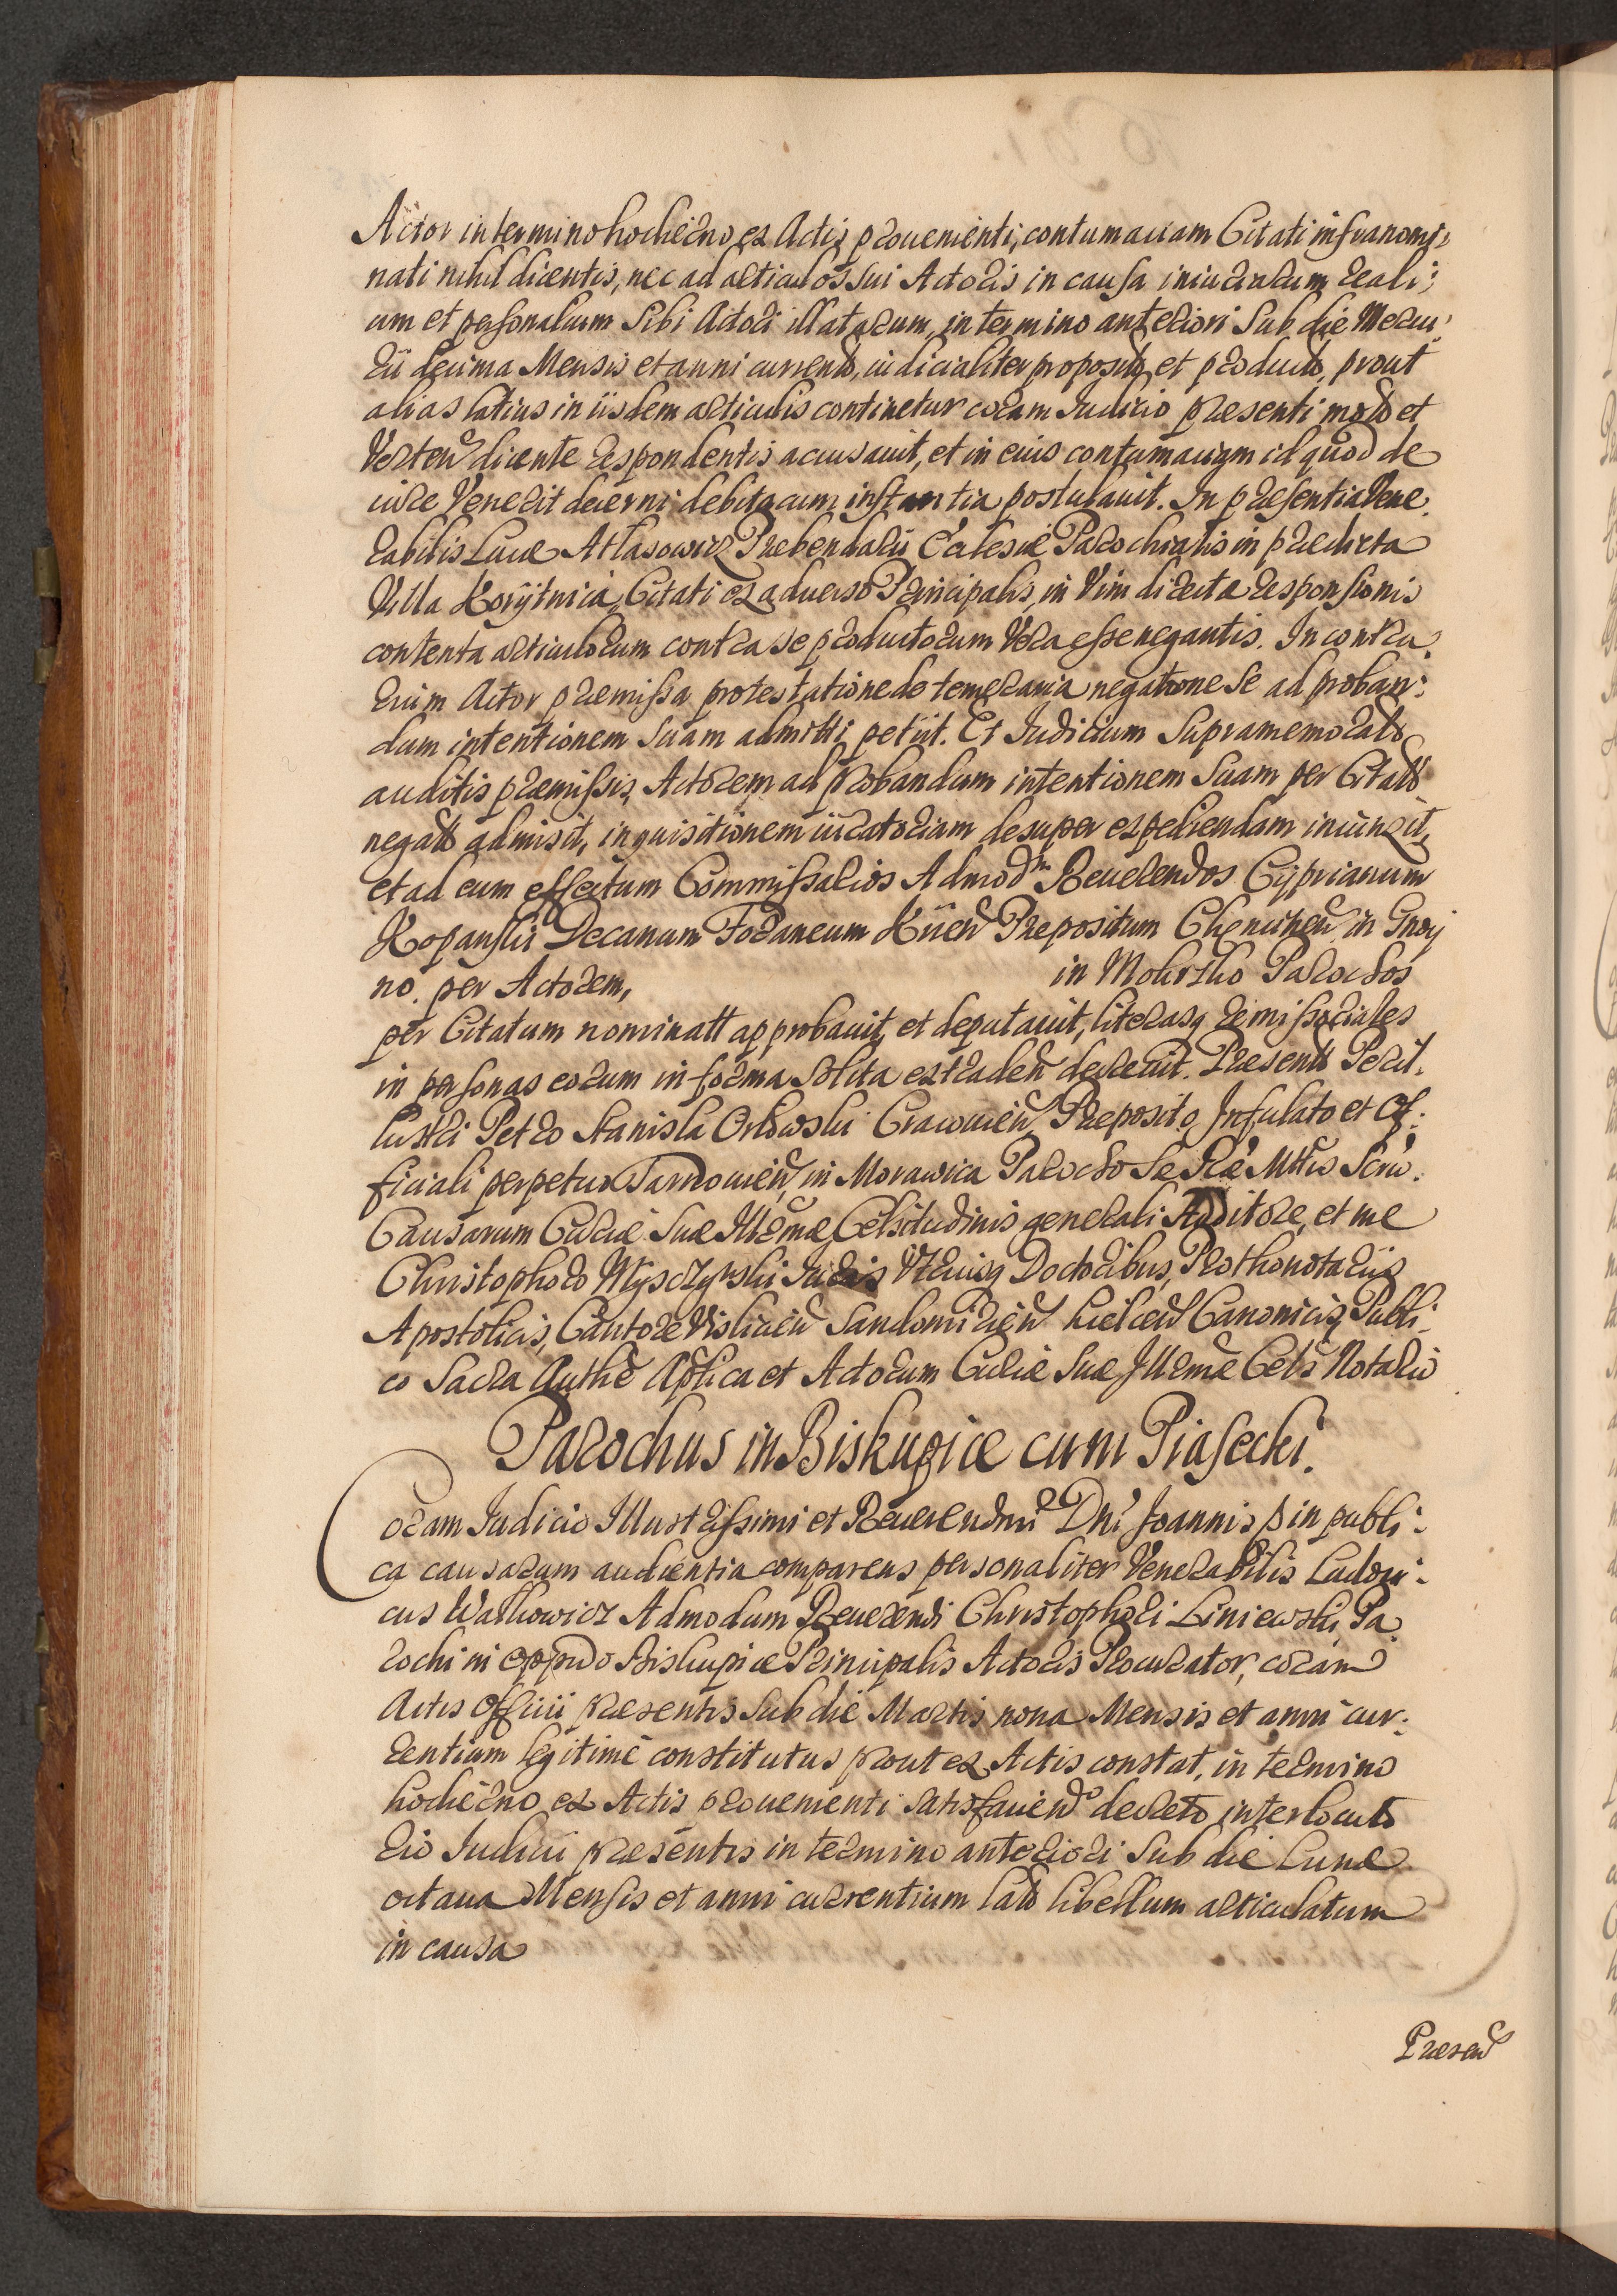 Actor in termino hodierno ex Actis prouenienti, contumaciam Citati infranomi:
nati nihil dicentis, nec ad articulos sui Actoris in causa iniuriarum reali:
um et personalium Sibi Actori illatarum, in termino anteriori Sub die Mercu:
rii decima Mensis et anni current͠, iudicialiter proposit͠ et product͠, prout
alias latius in iisdem articulis continetur coram Iudicio praesenti modo et
Verten͠ dicente respondentis accusauit, et in eius contumaciam id quod de
iure Venerit decerni debita cum instantia postulauit. In praesentia Vene:
rabilis Lucae Atlasowicz Praebendarii Ecclesiae Parochialis in praedicta
Villa Koryitnica, Citati ex aduerso Principalis, in Vim directae responsionis
contenta articulorum contra se productorum Vera esse negantis. In contra:
rium Actor praemissa protestatione de temeraria negatione Se ad proban:
dum intentionem Suam admitti petiit. Et Iudicium Supramemorat͠
auditis praemissis, Actorem ad probandum intentionem Suam per Citat͠
negat͠ admisit, inquisitionem iuratoriam desuper expediendam iniunxit,
et ad eum effectum Commissarios Admod͠m Reuerendos Cyprianum
Kopanski Decanum Foraneum Kiien͠ Praepositum Chencinen͠, in Gnoy
no. per Actorem, in Mokrsko Parochos
per Citatum nominatt approbauit, et deputauit, literasq remissoriales
in personas eorum in forma Solita extraden͠ decreuit. Praesent͠ Peril:
lustri Petro Stanisla Orłowski Cracouien͠, Praeposito Infulato et Of:
ficiali perpetuo Tarnouien͠, in Morawica Parocho Sae Rae Mttis Scrio:
Causarum Curiae Suae Illrmae Celsitudinis generali Auditore, et me
Christophoro Wysczynski Iuris Utriusq Doctoribus, Prothonotariis
Apostolicis, Cantore Vislicien͠ Sandomirien͠ Kielcen͠ Canonicis, Publi:
co Sacra Authe Aplica et Actorum Curiae Suae Illrmae Cels Notario
Parochus in Biskupice cum Piasecki.
Coram Iudicio Illustrissimi et Reuerendmi Dni Ioannis p in publi:
ca causarum audientia comparens personaliter Venerabilis Ludoui:
cus Walkowicz Admodum Reuerendi Christophori Liniewski Pa:
rochi in Oppido Biskupice Principalis Actoris Procurator, coram
Actis Officii praesentis Sub die Martis nona Mensis et anni cur:
rentium legitime constitutus prout ex Actis constat, in termino
hodierno ex Actis prouenienti Satisfacien͠do decreto interlocuto
rio Iudicii praesentis in termino anteriori Sub die Lunae
octaua Mensis et anni currentium lato libellum articulatum
in causa
Praesen͠